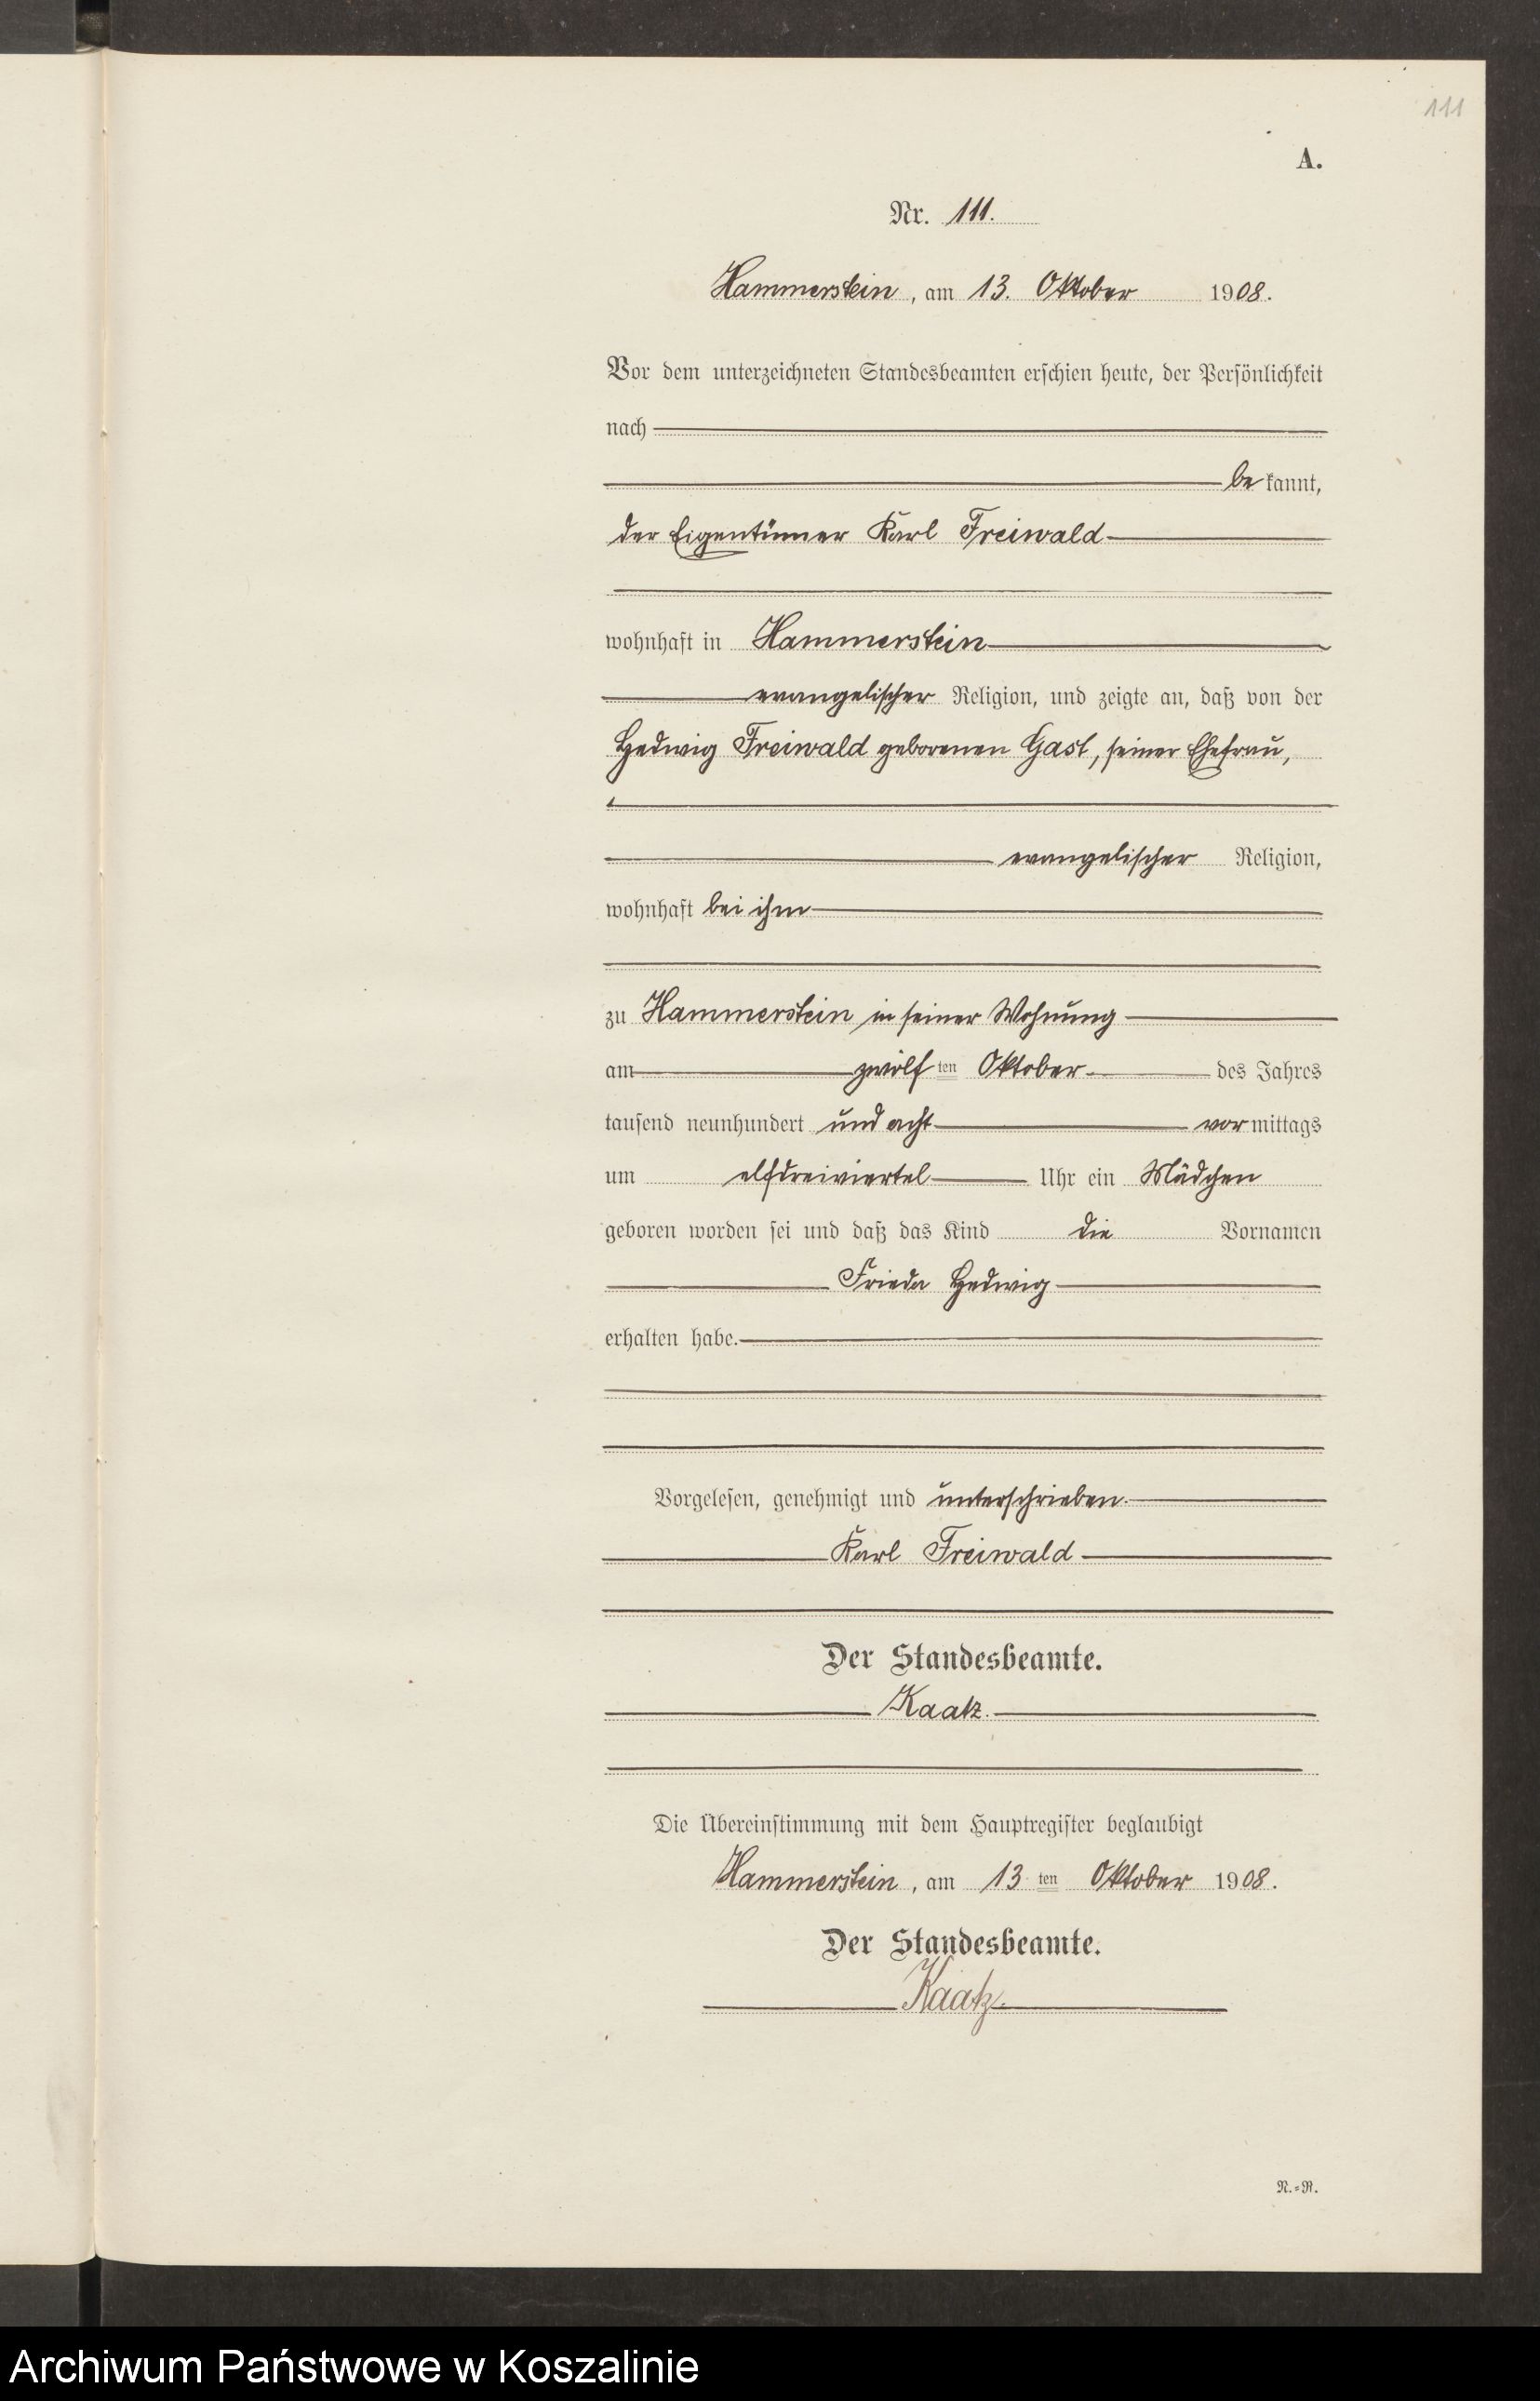 111
A.
Nr. 111.
Hammerstein, am 13. Oktober 1908.
Vor dem unterzeichneten Standesbeamten erschien heute, der Persönlichkeit
nach
bekannt,
der Eigentümer Karl Freiwald
wohnhaft in Hammerstein
evangelischer Religion, und zeigte an, daß von der
Hedwig Freiwald geborenen Gast, seiner Ehefrau,
evangelischer Religion,
wohnhaft bei ihm
zu Hammerstein in seiner Wohnung
am zwölften Oktober des Jahres
tausend neunhundert und acht vormittags
um elfdreiviertel Uhr ein Mädchen
geboren worden sei und daß das Kind die Vornamen
Frieda Hedwig
erhalten habe.
Vorgelesen, genehmigt und unterschrieben.
Karl Freiwald
Der Standesbeamte.
Kaatz.
Die Übereinstimmung mit dem Hauptregister beglaubigt
Hammerstein, am 13ten Oktober 1908.
Der Standesbeamte.
Kaatz.
N.=R.
Archiwum Państwowe w Koszalinie